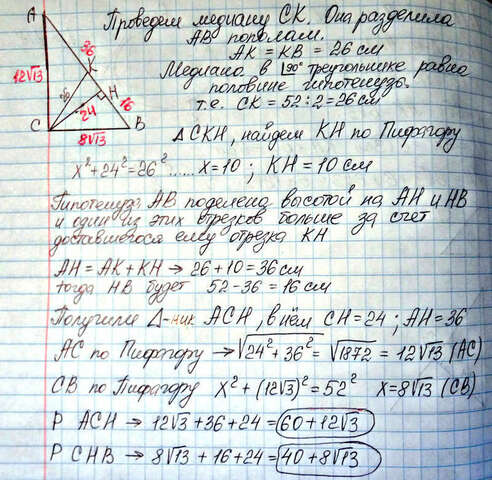 Проведем медиану СК. Она разделила
АВ пополам.
АК = КВ = 26 см
Медиана в 90° треугольнике равна
половине гипотенузы.
т.е. СК = 52:2 = 26 см
Δ СКН, найдем КН по Пифагору
x² + 24² = 26² ..... x = 10 ; КН = 10 см
Гипотенуза АВ поделена высотой на АН и НВ
и один из этих отрезков больше за счет
доставшегося ему отрезка КН
АН = АК + КН → 26 + 10 = 36 см
тогда НВ будет 52 - 36 = 16 см
Получили Δ-ник АСН, в нём СН = 24 ; АН = 36
АС по Пифагору → √24² + 36² = √1872 = 12√13 (АС)
СВ по Пифагору x² + (12√13)² = 52² x = 8√13 (СВ)
Р АСН → 12√13 + 36 + 24 = 60 + 12√13
Р СНВ → 8√13 + 16 + 24 = 40 + 8√13
А
36
К
12√13
26
Н
24
16
С
В
8√13